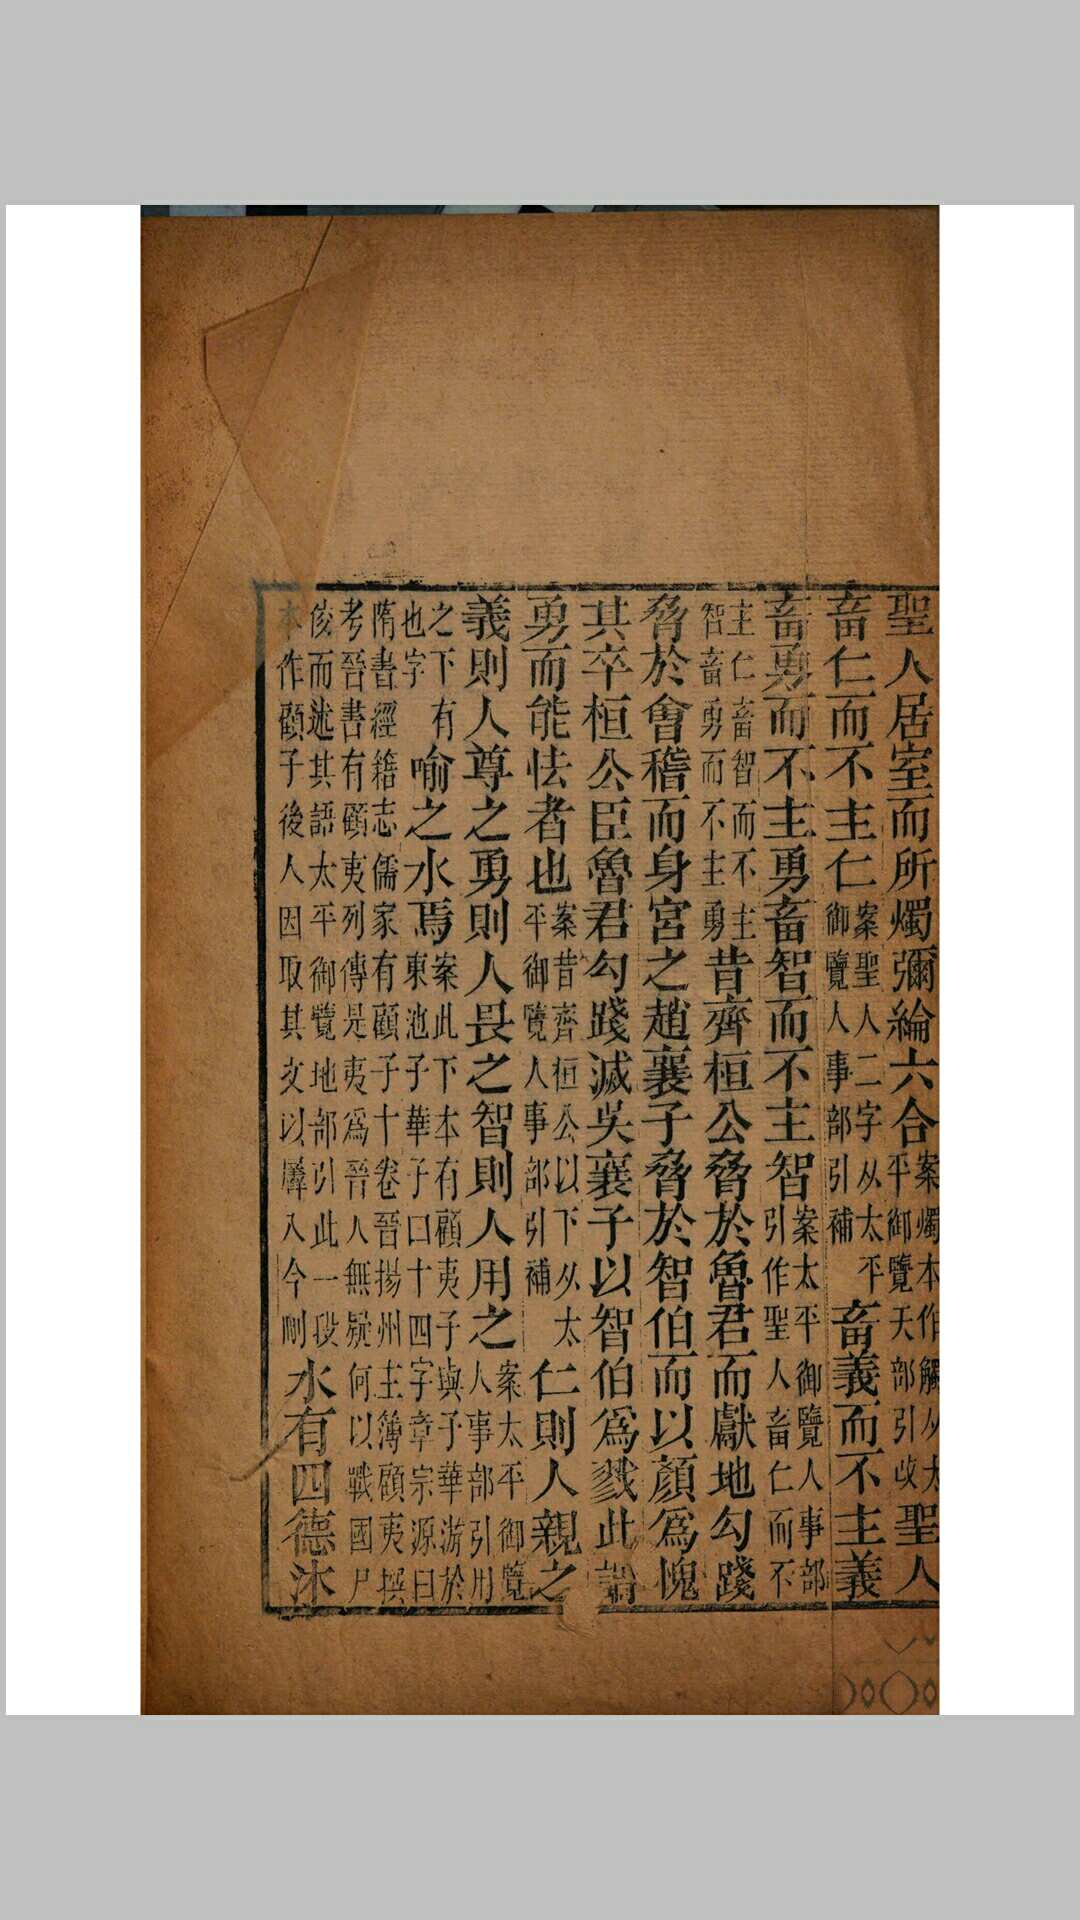 聖人居室而所燭彌綸六合案燭本作觸从太平御覽天部引改聖人
畜仁而不主仁案聖人二字从太平御覽人事部引補畜義而不主義
畜勇而不主勇畜智而不主智案太平御覽人事部引作聖人畜仁而不
主仁畜智而不主智畜勇而不主勇昔齊桓公脅於魯君而獻地勾踐
脅於會稽而身宮之趙襄子脅於智伯而以顏爲愧
其卒桓公臣魯君勾踐滅吳襄子以智伯爲戮此謂
勇而能怯者也案昔齊桓公以下从太平御覽人事部引補仁則人親之
義則人尊之勇則人畏之智則人用之案太平御覽人事部引用
之下有也字喻之水焉案此下本有顧夷子與子華游於東池子華子曰十四字章宗源曰
隋書經籍志儒家有顧子十卷晉揚州主簿顧夷撰考晉書有顧夷列傳是夷爲晉人無疑何以戰國尸
佼而述其語太平御覽地部引此一段本作顧子後人因取其文以羼入今刪水有四德沐